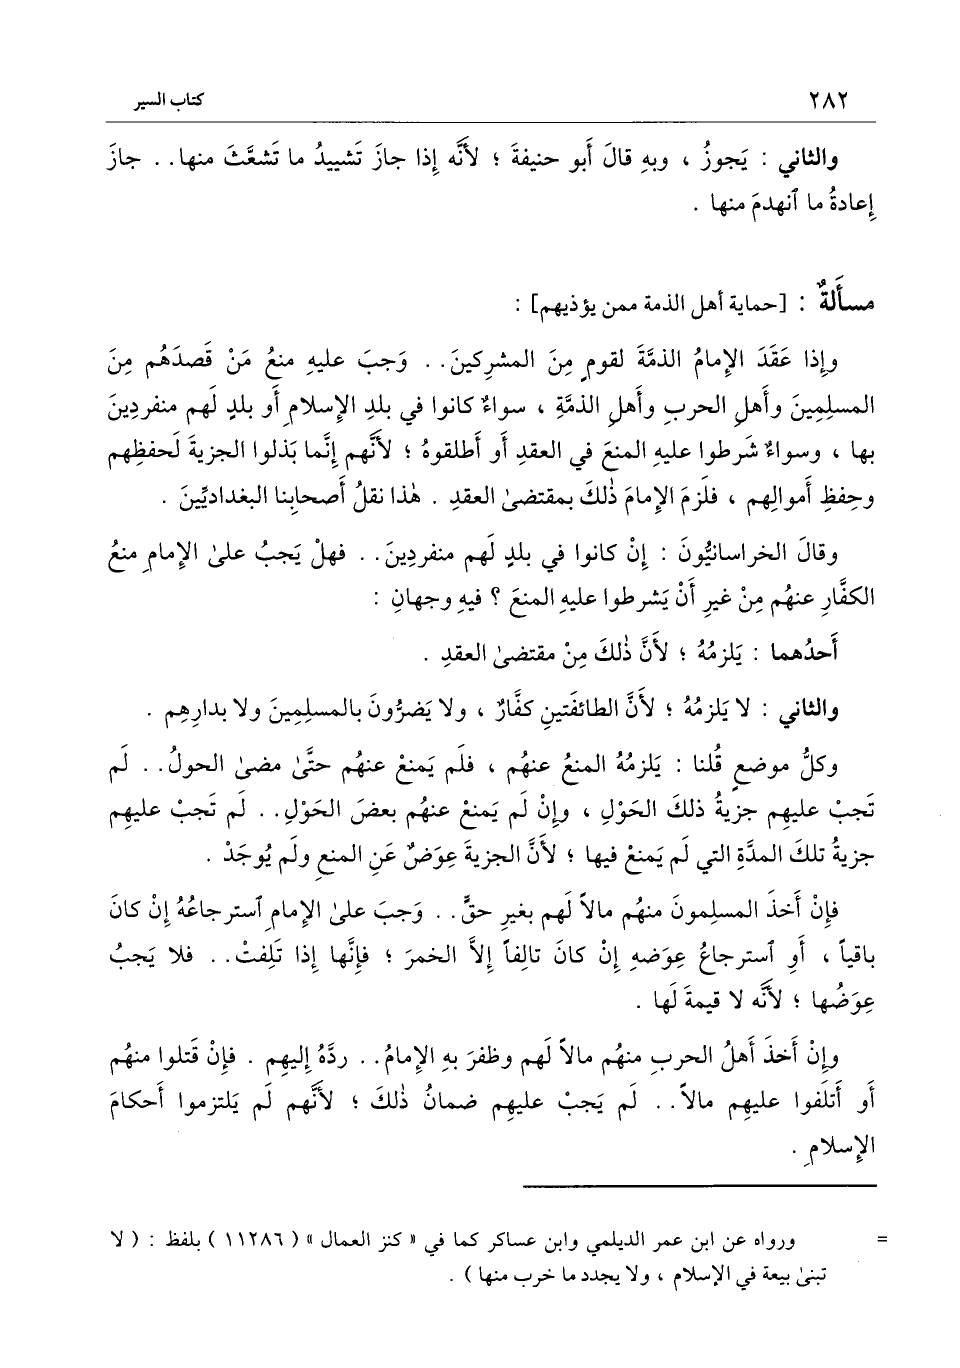 ٢٨٢ كتاب السير
والثاني : يَجوزُ ، وبهِ قالَ أَبو حنيفةَ ؛ لأَنَّه إِذا جازَ تَشييدُ ما تَشعَّثَ منها . . جازَ
إِعادةُ ما ٱنهدمَ منها .
مسأَلةٌ : [حماية أهل الذمة ممن يؤذيهم] :
وإِذا عَقَدَ الإِمامُ الذمَّةَ لقومٍ مِنَ المشركينَ . . وَجبَ عليهِ منعُ مَنْ قَصدَهُم مِنَ
المسلِمينَ وأَهلِ الحربِ وأَهلِ الذمَّةِ ، سواءٌ كانوا في بلدِ الإِسلامِ أَو بلدٍ لَهم منفردِينَ
بها ، وسواءٌ شَرطوا عليهِ المنعَ في العقدِ أَو أَطلقوهُ ؛ لأَنَّهم إِنَّما بَذلوا الجزيةَ لَحفظِهم
وحِفظِ أَموالِهم ، فلَزمَ الإِمامَ ذٰلكَ بمقتضىٰ العقدِ . هٰذا نقلُ أَصحابِنا البغداديِّينَ .
وقالَ الخراسانيُّونَ : إِنْ كانوا في بلدٍ لَهم منفردِينَ . . فهلْ يَجبُ علىٰ الإِمامِ منعُ
الكفَّارِ عنهُم مِنْ غيرِ أَنْ يَشرطوا عليهِ المنعَ ؟ فيهِ وجهانِ :
أَحدُهما : يَلزمُهُ ؛ لأَنَّ ذٰلكَ مِنْ مقتضىٰ العقدِ .
والثاني : لا يَلزمُهُ ؛ لأَنَّ الطائفَتينِ كفَّارٌ ، ولا يَضرُّونَ بالمسلِمينَ ولا بدارِهِم .
وكلُّ موضعٍ قُلنا : يَلزمُهُ المنعُ عنهُم ، فلَم يَمنعْ عنهُم حتَّىٰ مضىٰ الحولُ . . لَم
تَجبْ عليهِم جزيةُ ذلكَ الحَوْلِ ، وإِنْ لَم يَمنعْ عنهُم بعضَ الحَوْلِ . . لَم تَجبْ عليهِم
جزيةُ تلكَ المدَّةِ التي لَم يَمنعْ فيها ؛ لأَنَّ الجزيةَ عِوَضٌ عَنِ المنعِ ولَم يُوجَدْ .
فإِنْ أَخذَ المسلِمونَ منهُم مالاً لَهم بغيرِ حقٍّ . . وَجبَ علىٰ الإِمامِ ٱسترجاعُهُ إِنْ كانَ
باقياً ، أَوِ ٱسترجاعُ عِوَضهِ إِنْ كانَ تالِفاً إِلاَّ الخمرَ ؛ فإِنَّها إِذا تَلِفتْ . . فلا يَجبُ
عِوَضُها ؛ لأَنَّه لا قيمةَ لَها .
وإِنْ أَخذَ أَهلُ الحربِ منهُم مالاً لَهم وظفرَ بهِ الإِمامُ . . ردَّهُ إِليهِم . فإِنْ قَتلوا منهُم
أَو أَتلَفوا عليهِم مالاً . . لَم يَجبْ عليهِم ضمانُ ذٰلكَ ؛ لأَنَّهم لَم يَلتزموا أَحكامَ
الإِسلامِ .
= ورواه عن ابن عمر الديلمي وابن عساكر كما في « كنز العمال » ( ١١٢٨٦ ) بلفظ : ( لا
تبنىٰ بيعة في الإسلام ، ولا يجدد ما خرب منها ) .